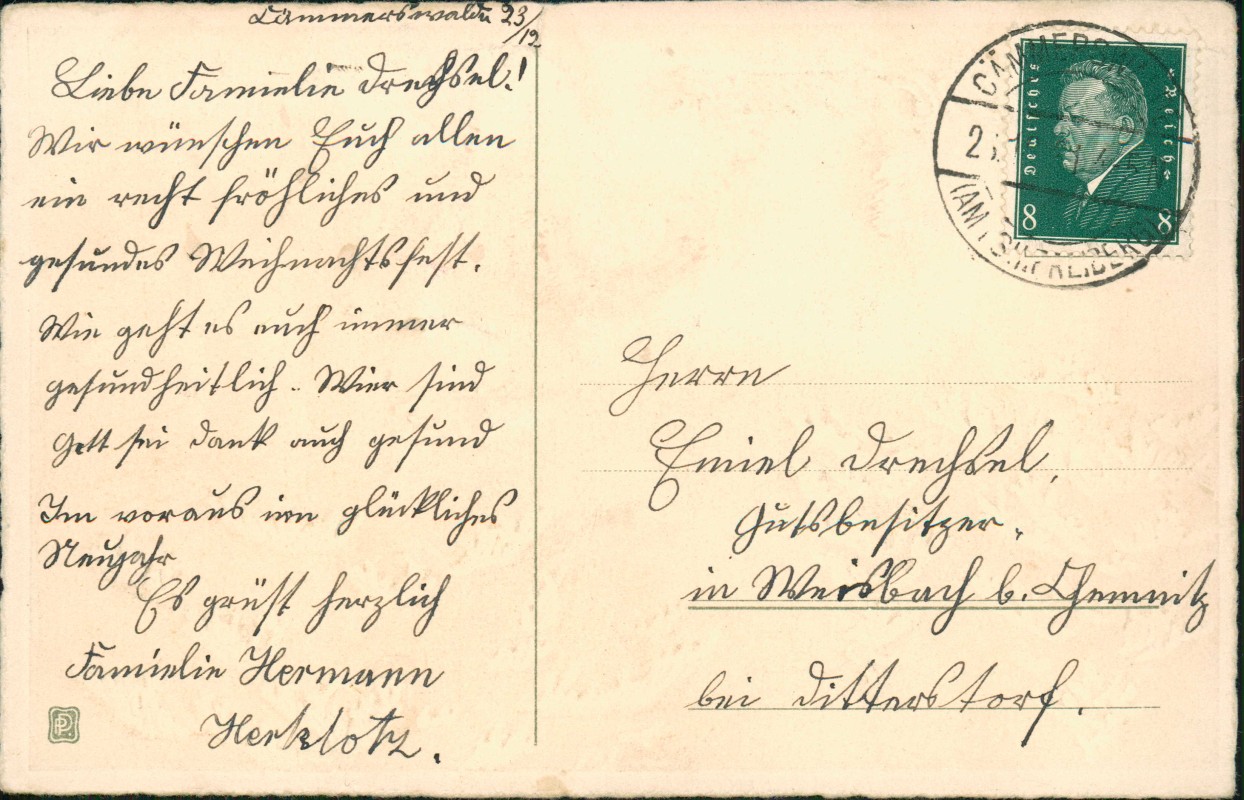 Cämmerswalde 23/12
Liebe Familie Drechsel!
Wir wünschen Euch allen
ein recht fröhliches und
gesundes Weihnachtsfest.
Wie geht es euch immer
gesundheitlich. Wier sind
Gott sei dank auch gesund
Im voraus ein glückliches
Neujahr
Es grüst herzlich
Famielie Hermann
Herklotz.
CÄMMERS
(AMTSH. FREIBERG)
Deutsches Reich
8 8
Herrn
Emiel Drechsel,
Gutsbesitzer,
in Weisbach b. Chemnitz
bei Ditterstorf.
PP.